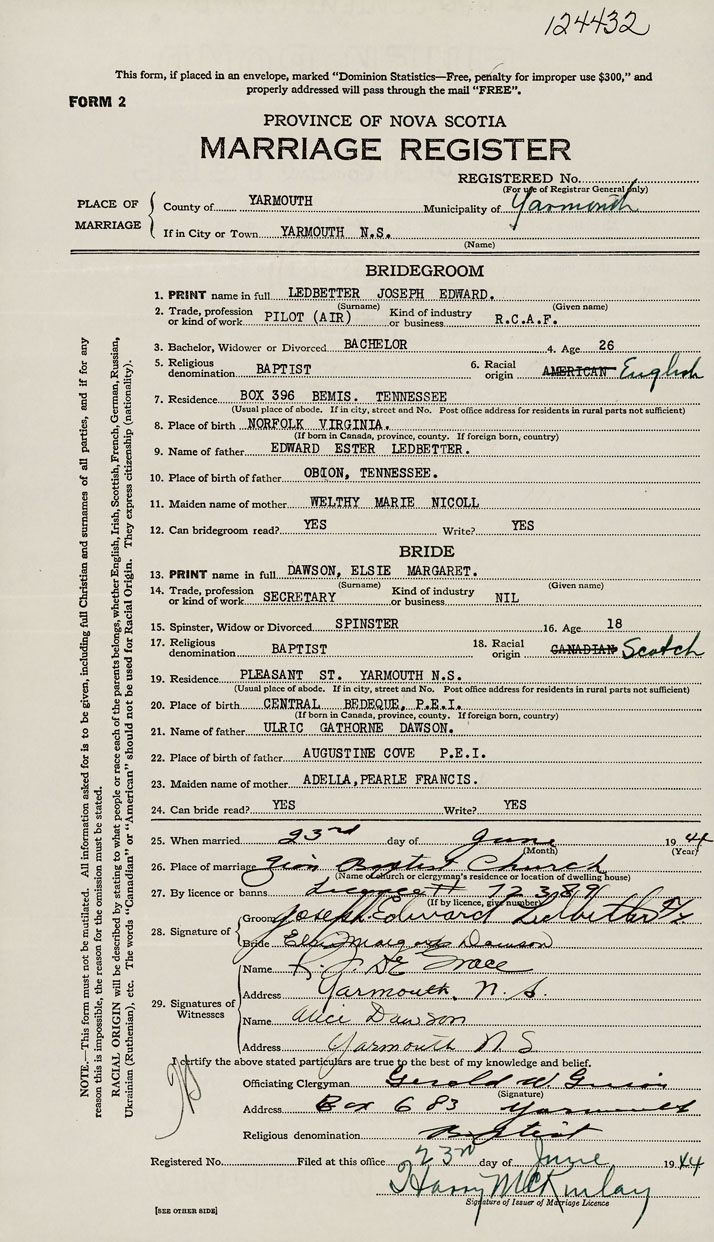 124432
This form, if placed in an envelope, marked "Dominion Statistics—Free, penalty for improper use $300," and
properly addressed will pass through the mail "FREE".
FORM 2
PROVINCE OF NOVA SCOTIA
MARRIAGE REGISTER
REGISTERED No.
(For use of Registrar General only)
PLACE OF MARRIAGE
County of YARMOUTH Municipality of Yarmouth
If in City or Town YARMOUTH N.S.
(Name)
BRIDEGROOM
1. PRINT name in full LEDBETTER JOSEPH EDWARD.
(Surname) (Given name)
2. Trade, profession or kind of work PILOT (AIR) Kind of industry or business R.C.A.F.
3. Bachelor, Widower or Divorced BACHELOR 4. Age 26
5. Religious denomination BAPTIST 6. Racial origin AMERICAN English
7. Residence BOX 396 BEMIS. TENNESSEE
(Usual place of abode. If in city, street and No. Post office address for residents in rural parts not sufficient)
8. Place of birth NORFOLK VIRGINIA.
(If born in Canada, province, county. If foreign born, country)
9. Name of father EDWARD ESTER LEDBETTER.
10. Place of birth of father OBION, TENNESSEE.
11. Maiden name of mother WELTHY MARIE NICOLL
12. Can bridegroom read? YES Write? YES
BRIDE
13. PRINT name in full DAWSON, ELSIE MARGARET.
(Surname) (Given name)
14. Trade, profession or kind of work SECRETARY Kind of industry or business NIL
15. Spinster, Widow or Divorced SPINSTER 16. Age 18
17. Religious denomination BAPTIST 18. Racial origin CANADIAN Scotch
19. Residence PLEASANT ST. YARMOUTH N.S.
(Usual place of abode. If in city, street and No. Post office address for residents in rural parts not sufficient)
20. Place of birth CENTRAL BEDEQUE, P.E.I.
(If born in Canada, province, county. If foreign born, country)
21. Name of father ULRIC GATHORNE DAWSON.
22. Place of birth of father AUGUSTINE COVE P.E.I.
23. Maiden name of mother ADELLA,PEARLE FRANCIS.
24. Can bride read? YES Write? YES
25. When married 23rd day of June 1944
(Month) (Year)
26. Place of marriage Zion Baptist Church
(Name of church or clergyman's residence or location of dwelling house)
27. By licence or banns Licence # 72389
(If by licence, give number)
28. Signature of
Groom Joseph Edward Ledbetter
Bride Elsie Margaret Dawson
29. Signatures of Witnesses
Name De Grace
Address Yarmouth, N.S.
Name Alice Dawson
Address Yarmouth N S
I certify the above stated particulars are true to the best of my knowledge and belief.
Officiating Clergyman Gerald W.
(Signature)
Address Box 683 Yarmouth
Religious denomination Baptist
Registered No. Filed at this office 23rd day of June 1944
Harry McKinlay
Signature of Issuer of Marriage Licence
[SEE OTHER SIDE]
NOTE.—This form must not be mutilated. All information asked for is to be given, including full Christian and surnames of all parties, and if for any
reason this is impossible, the reason for the omission must be stated.
RACIAL ORIGIN will be described by stating to what people or race each of the parents belongs, whether English, Irish, Scottish, French, German, Russian,
Ukrainian (Ruthenian), etc. The words "Canadian" or "American" should not be used for Racial Origin. They express citizenship (nationality).